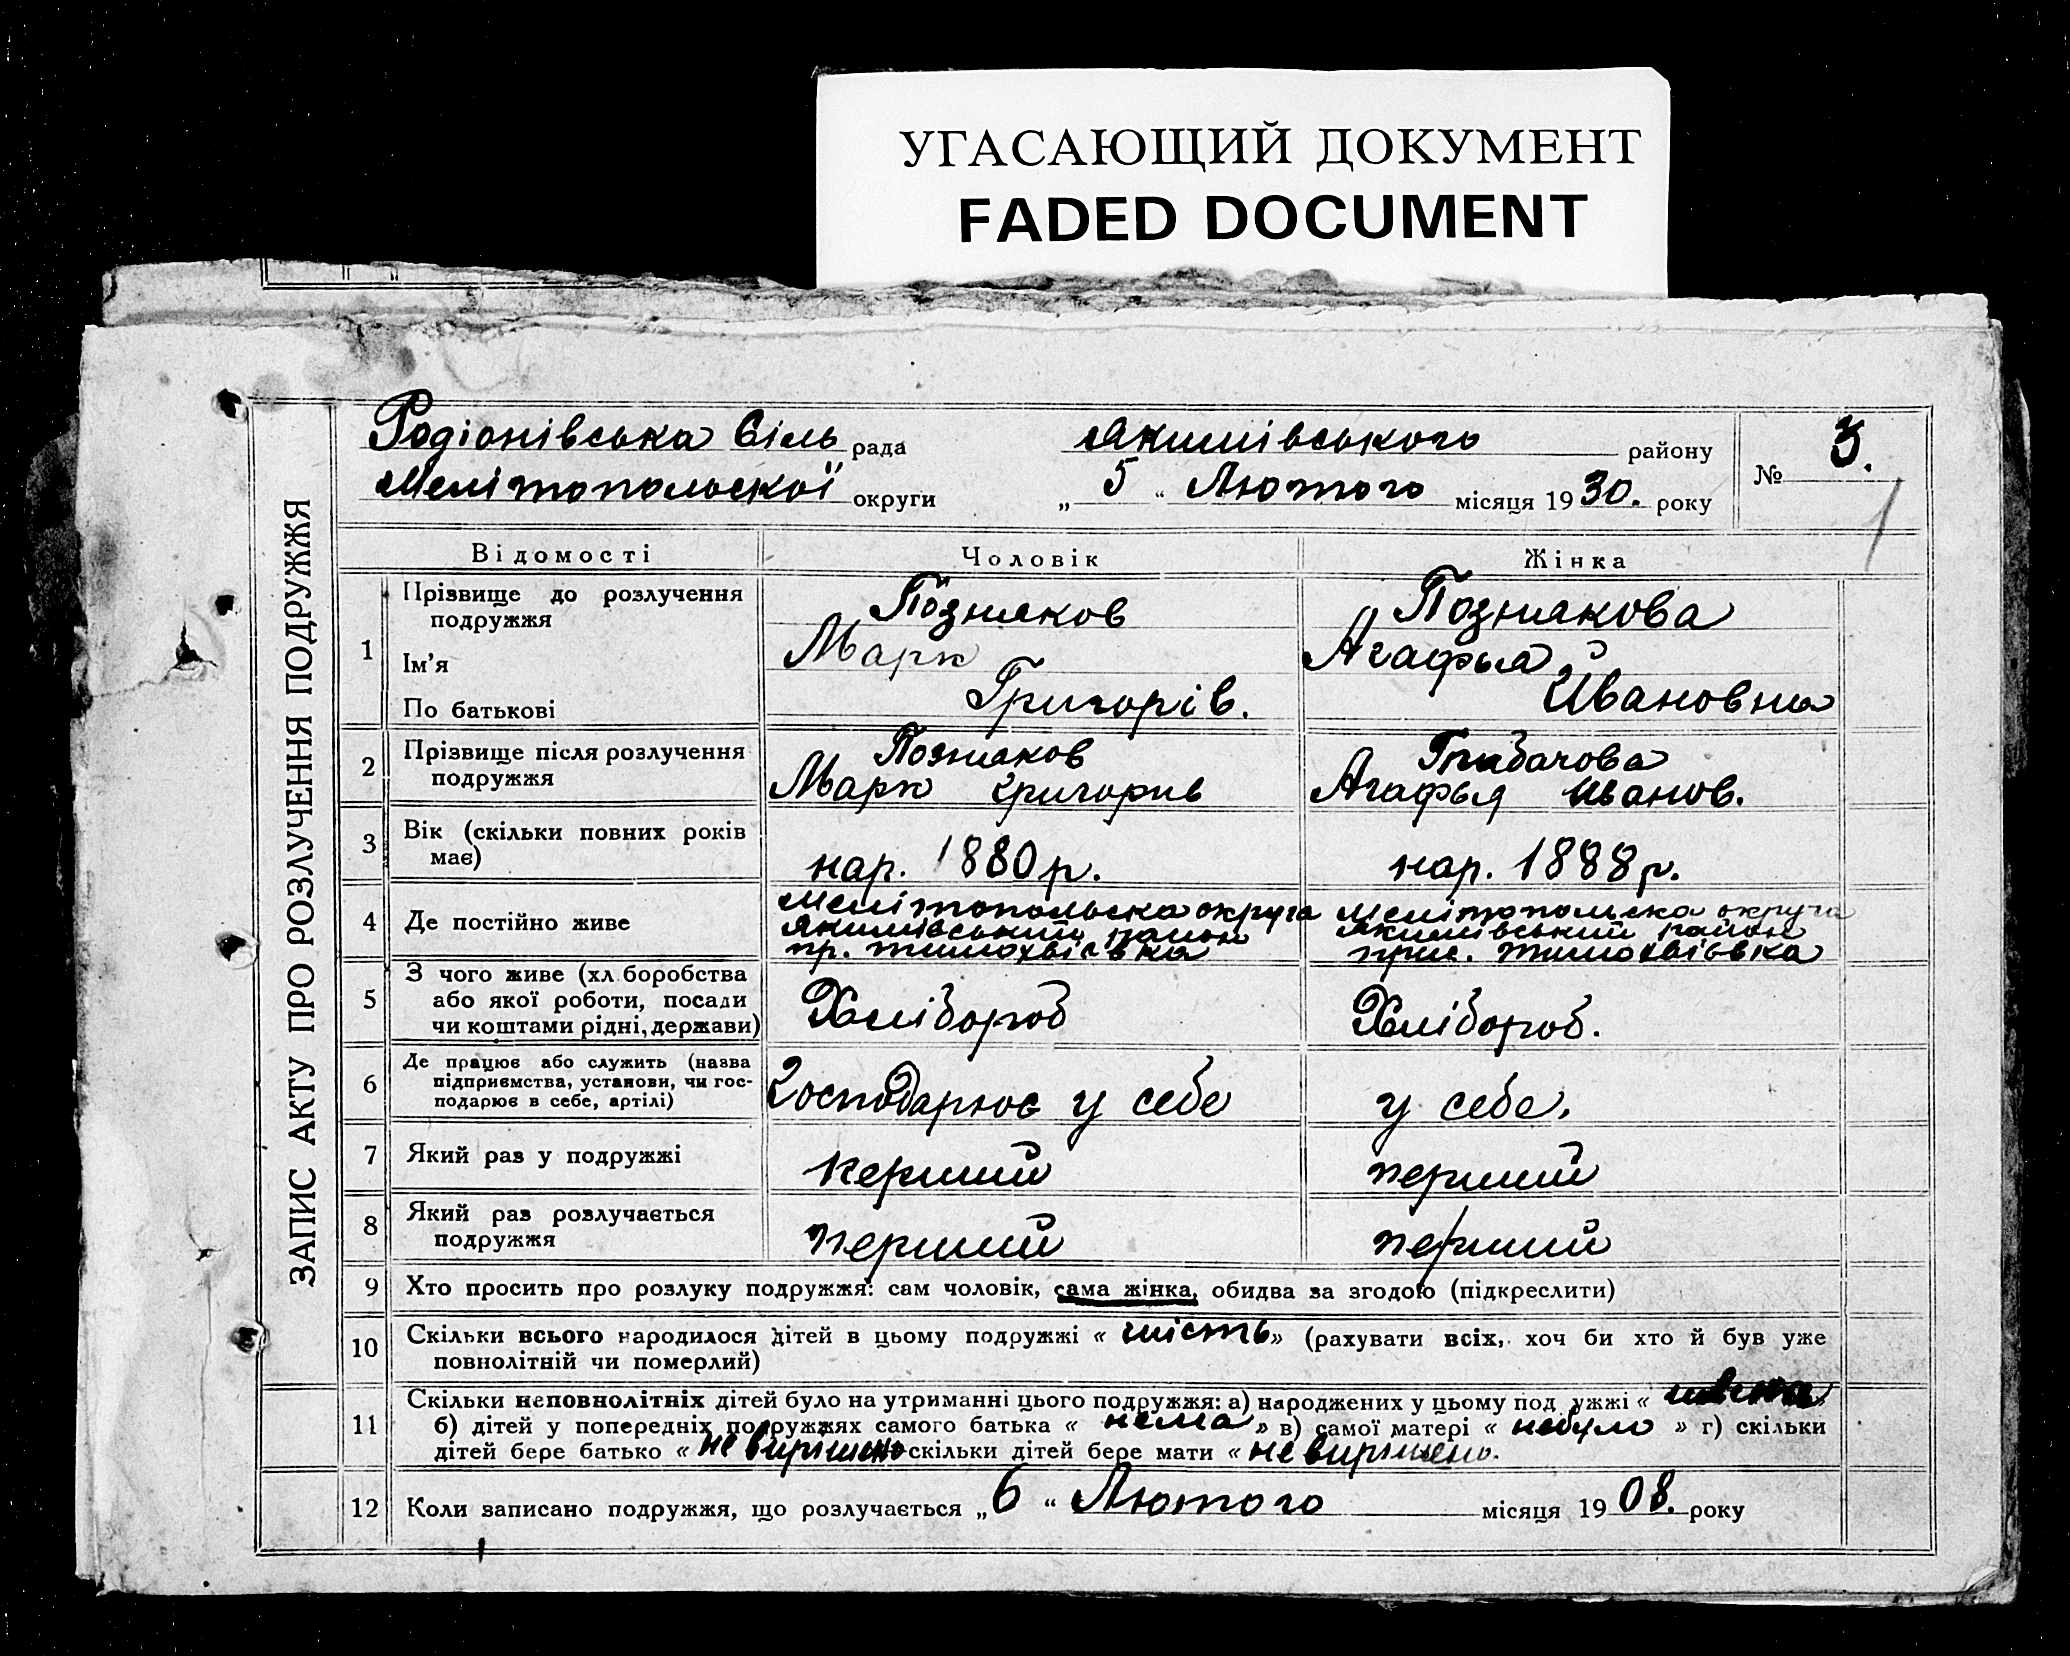 УГАСАЮЩИЙ ДОКУМЕНТ
FADED DOCUMENT
ЗАПИС АКТУ ПРО РОЗЛУЧЕННЯ ПОДРУЖЖЯ
Родіонівська Сіль рада Якимівського району
№ 3.
Мелітопольської округи „ 5 “ Лютого місяця 1930. року
1
Відомості Чоловік Жінка
1 Прізвище до розлучення подружжя Позняков Познякова
Ім'я Марк Агафья
По батькові Григорів. Ивановна
2 Прізвище після розлучення Позняков
подружжя Марк Григорив Агафья Иванов.
3 Вік (скільки повних років
має) нар. 1880 р. нар. 1888 р.
Мелітопольска округа Мелітопольска округа
4 Де постійно живе Якимівський район Якимівський район
5 З чого живе (хл боробства
або якої роботи, посади Хлібороб Хлібороб.
чи коштами рідні, держави)
6 Де працює або служить (назва
підприємства, установи, чи гос-
подарює в себе, артілі) Господарює у себе у себе.
7 Який раз у подружжі перший перший
8 Який раз розлучається
подружжя перший перший
9 Хто просить про розлуку подружжя: сам чоловік, сама жінка, обидва за згодою (підкреслити)
10 Скільки всього народилося дітей в цьому подружжі « шість» (рахувати всіх, хоч би хто й був уже
повнолітній чи померлий)
11 Скільки неповнолітніх дітей було на утриманні цього подружжя: а) народжених у цьому под ужжі «
б) дітей у попередніх подружжях самого батька « нема » в) самої матері « небуло » г) скільки
дітей бере батько « не вирішено скільки дітей бере мати « не вирішено.
12 Коли записано подружжя, що розлучається „ 6 “ Лютого місяця 1908. року